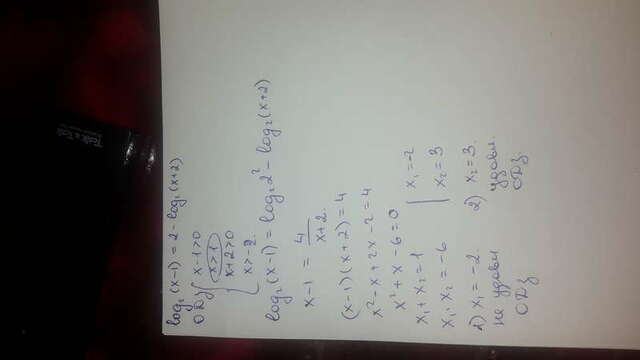 log₂(x-1) = 2 - log₂(x+2)
ОДЗ { x-1>0
x>1
x+2>0
x>-2.
log₂(x-1) = log₂2² - log₂(x+2)
x-1 = 4/(x+2).
(x-1)(x+2) = 4
x²-x+2x-2=4
x²+x-6=0
x₁+x₂=1 | x₁=-2
x₁·x₂=-6 | x₂=3
1) x₁=-2. 2) x₂=3.
не удовл удовл.
ОДЗ ОДЗ.
Talk & Talk